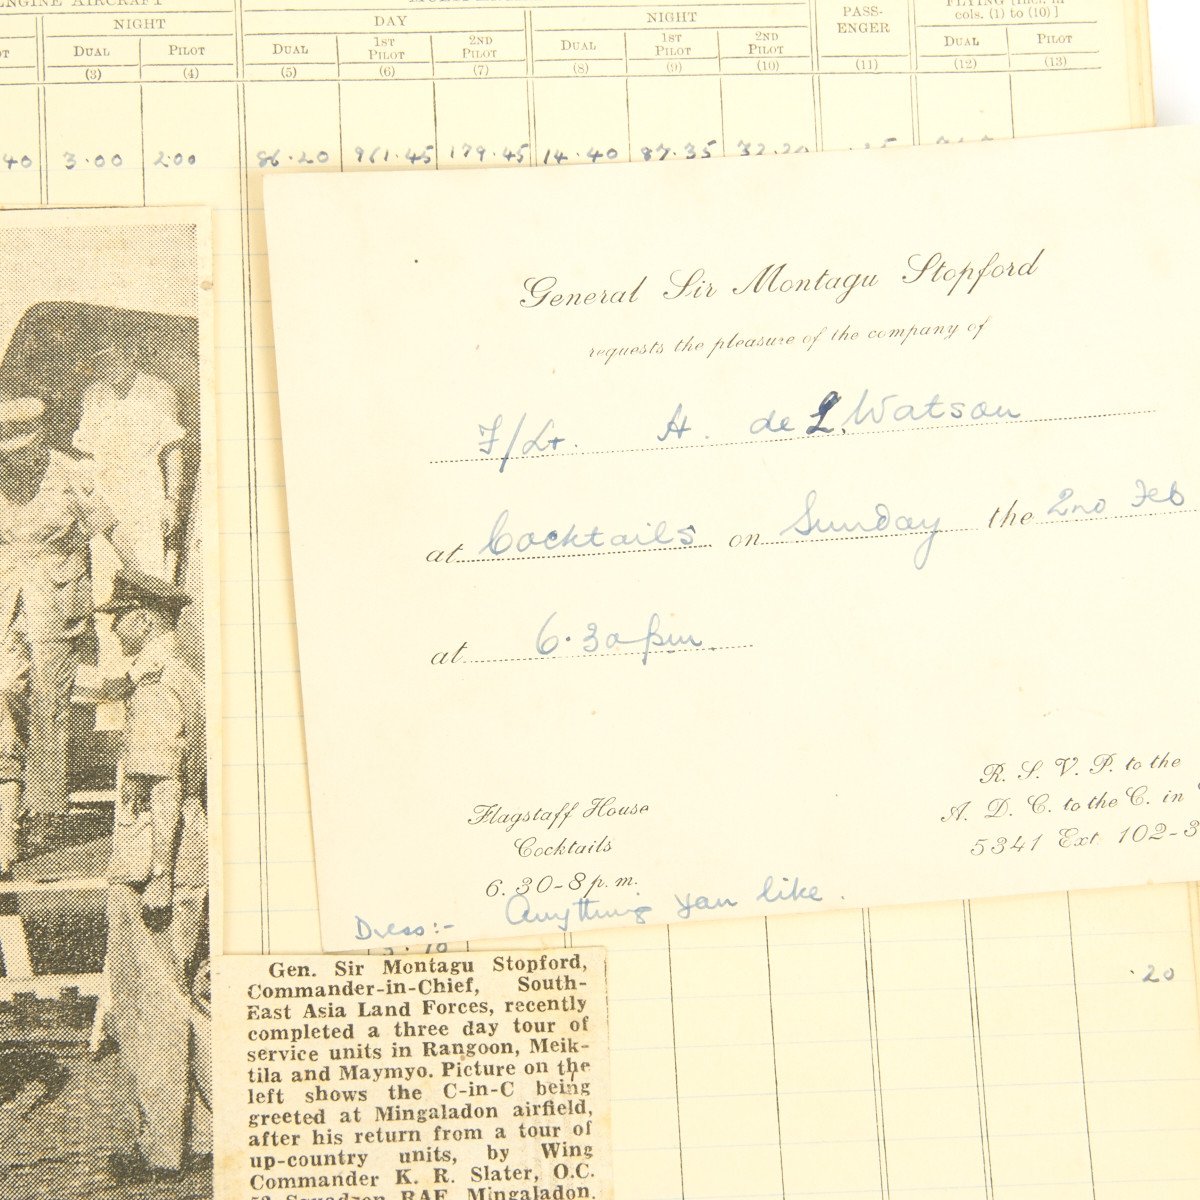 ENGINE AIRCRAFT
NIGHT DAY NIGHT PASS-
ENGER FLYING [Incl. in
cols. (1) to (10)]
DUAL PILOT DUAL 1ST
PILOT 2ND
PILOT DUAL 1ST
PILOT 2ND
PILOT DUAL PILOT
(3) (4) (5) (6) (7) (8) (9) (10) (11) (12) (13)
40 3.00 2.00 86.20 961.45 179.45 14.40 87.35
General Sir Montagu Stopford
requests the pleasure of the company of
F/Lt. H. de L. Watson
at Cocktails on Sunday the 2nd Feb
at 6.30 pm.
Flagstaff House
Cocktails
6.30-8 p.m.
R. S. V. P. to the
A. D. C. to the C. in
5341 Ext. 102-3
Dress:- Anything you like.
.20
Gen. Sir Montagu Stopford,
Commander-in-Chief, South-
East Asia Land Forces, recently
completed a three day tour of
service units in Rangoon, Meik-
tila and Maymyo. Picture on the
left shows the C-in-C being
greeted at Mingaladon airfield,
after his return from a tour of
up-country units, by Wing
Commander K. R. Slater, O.C.
52 Squadron RAF Mingaladon.